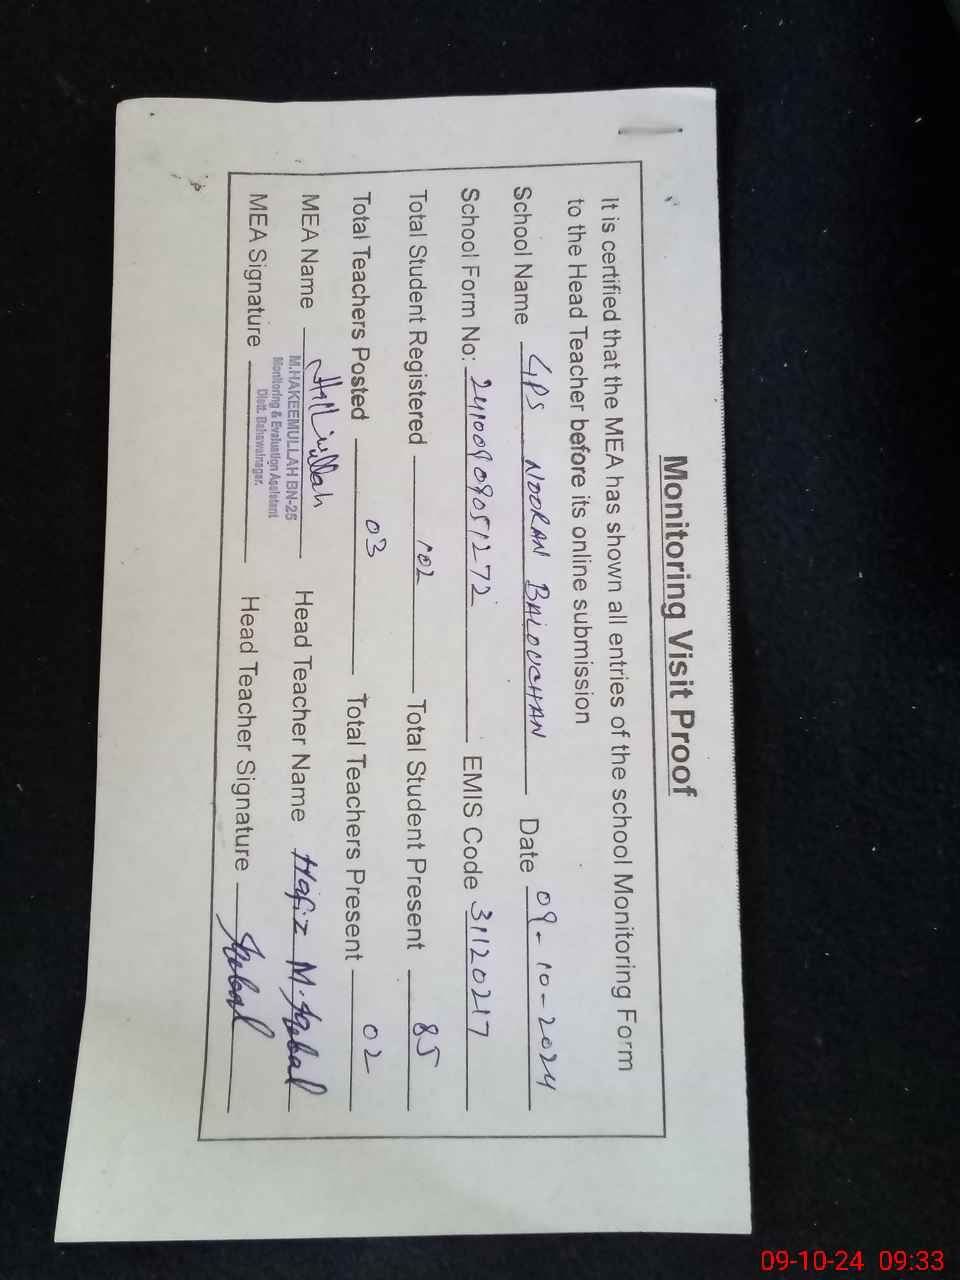 Monitoring Visit Proof
It is certified that the MEA has shown all entries of the school Monitoring Form
to the Head Teacher before its online submission
School Name GPS NOORAN BALOUCHAN Date 09-10-2024
School Form No: 24100908051272 EMIS Code 31120217
Total Student Registered 102 Total Student Present 85
Total Teachers Posted 03 Total Teachers Present 02
MEA Name Head Teacher Name Hafiz M. Iqbal
M.HAKEEMULLAH BN-25
Monitoring & Evaluation Assistant
Distt. Bahawalnagar.
MEA Signature Head Teacher Signature Iqbal
09-10-24 09:33